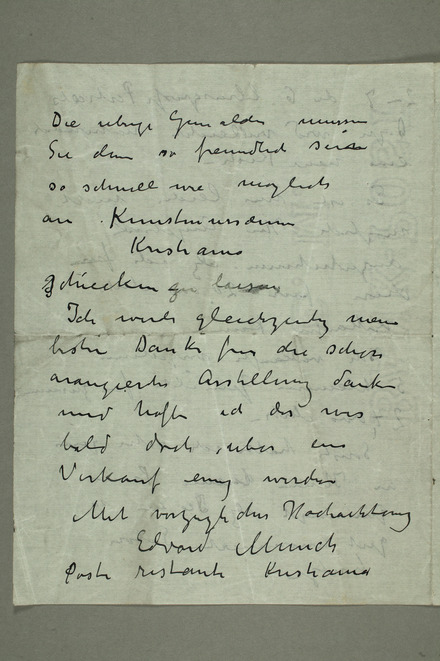 Die ubrige Gemalde mussen
Sie dann so freundlich sein
so schnell wie moglich
an Kunstmuseum
Kristiania
schicken zu lassen
Ich werde gleichzeitig meine
besten Danke fur die schon
arangierte Ausstellung danken
und hoffe ich das wir
bald doch uber ein
Verkauf einig werden
Mit vorzuglicher Hochachtung
Edvard Munch
Poste restante Kristiania